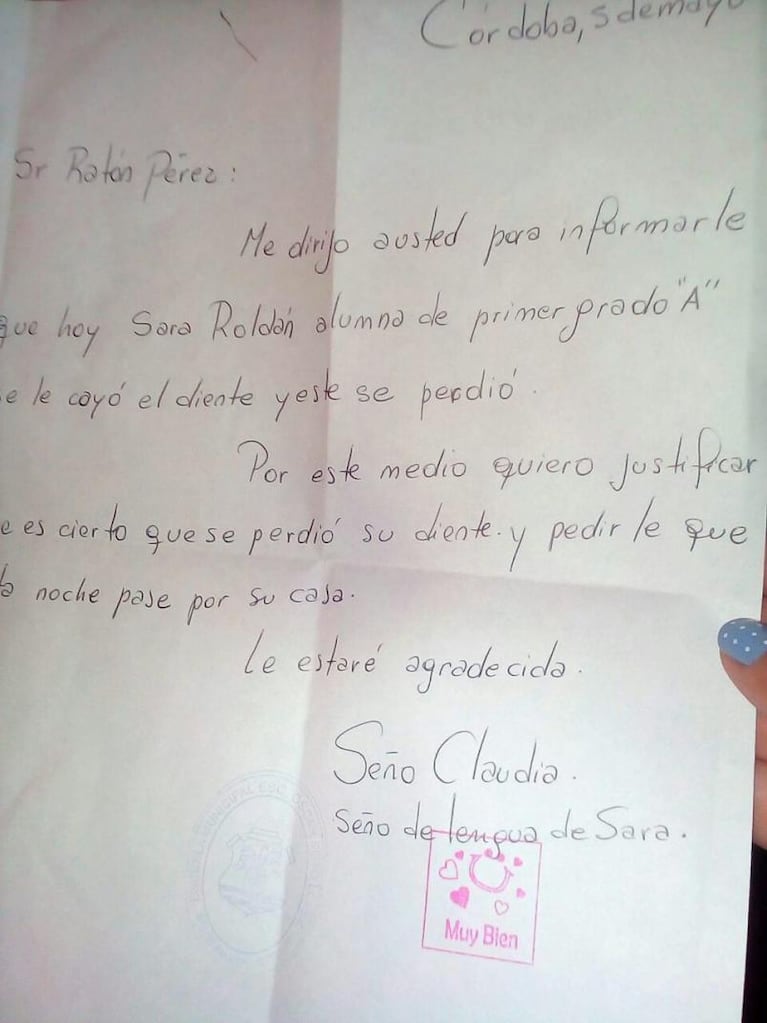 Córdoba, 5 de mayo
Sr Ratón Pérez:
Me dirijo a usted para informarle
que hoy Sara Roldán alumna de primer grado "A"
e le cayó el diente y este se perdió.
Por este medio quiero justificar
e es cierto que se perdió su diente. y pedirle que
la noche pase por su casa.
Le estaré agradecida.
Seño Claudia.
Seño de lengua de Sara.
MUNICIPAL
Muy Bien